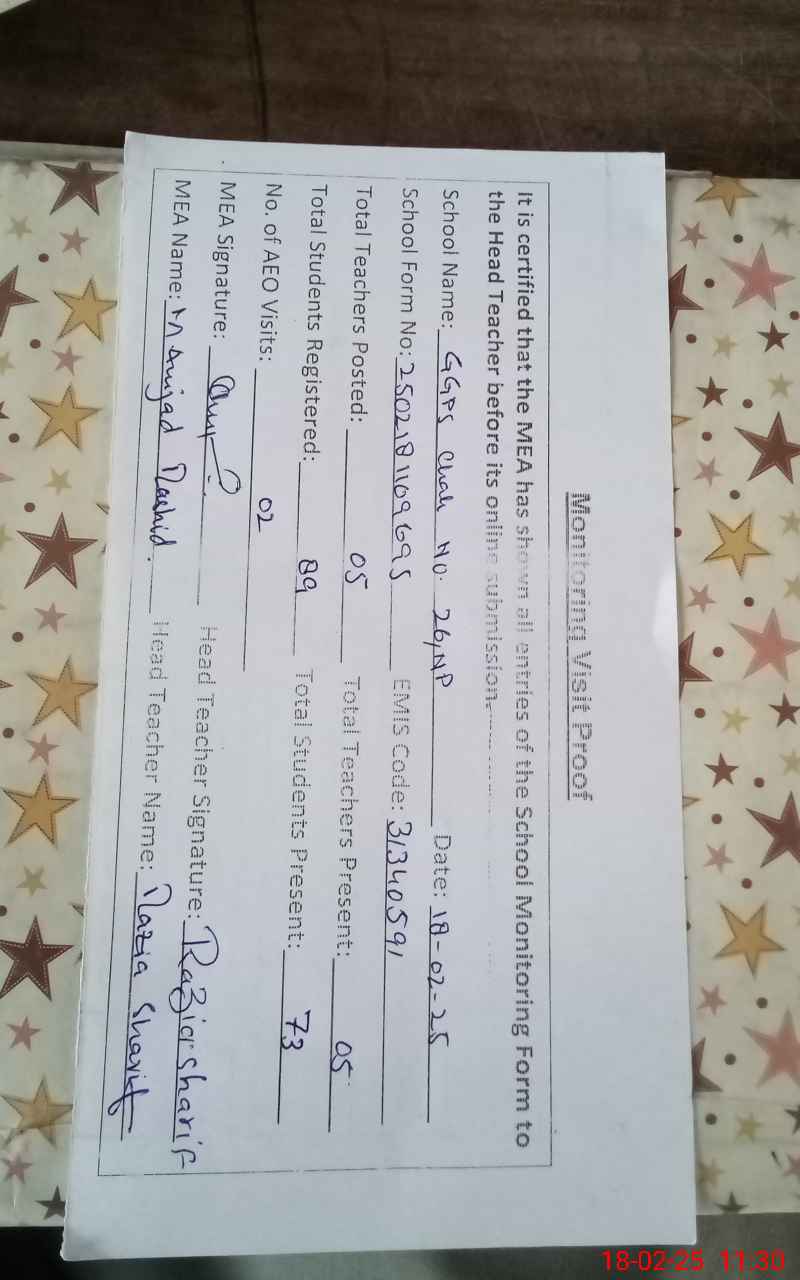 Monitoring Visit Proof
It is certified that the MEA has shown all entries of the School Monitoring Form to
the Head Teacher before its online submission.
School Name: GGPS Chak No. 26/NP Date: 18-02-25
School Form No: 2502181109695 EMIS Code: 31340591
Total Teachers Posted: 05 Total Teachers Present: 05
Total Students Registered: 89 Total Students Present: 73
No. of AEO Visits: 02
MEA Signature: Head Teacher Signature: Razia Sharif
MEA Name: M Amjad Rashid. Head Teacher Name: Razia Sharif
18-02-25 11:30